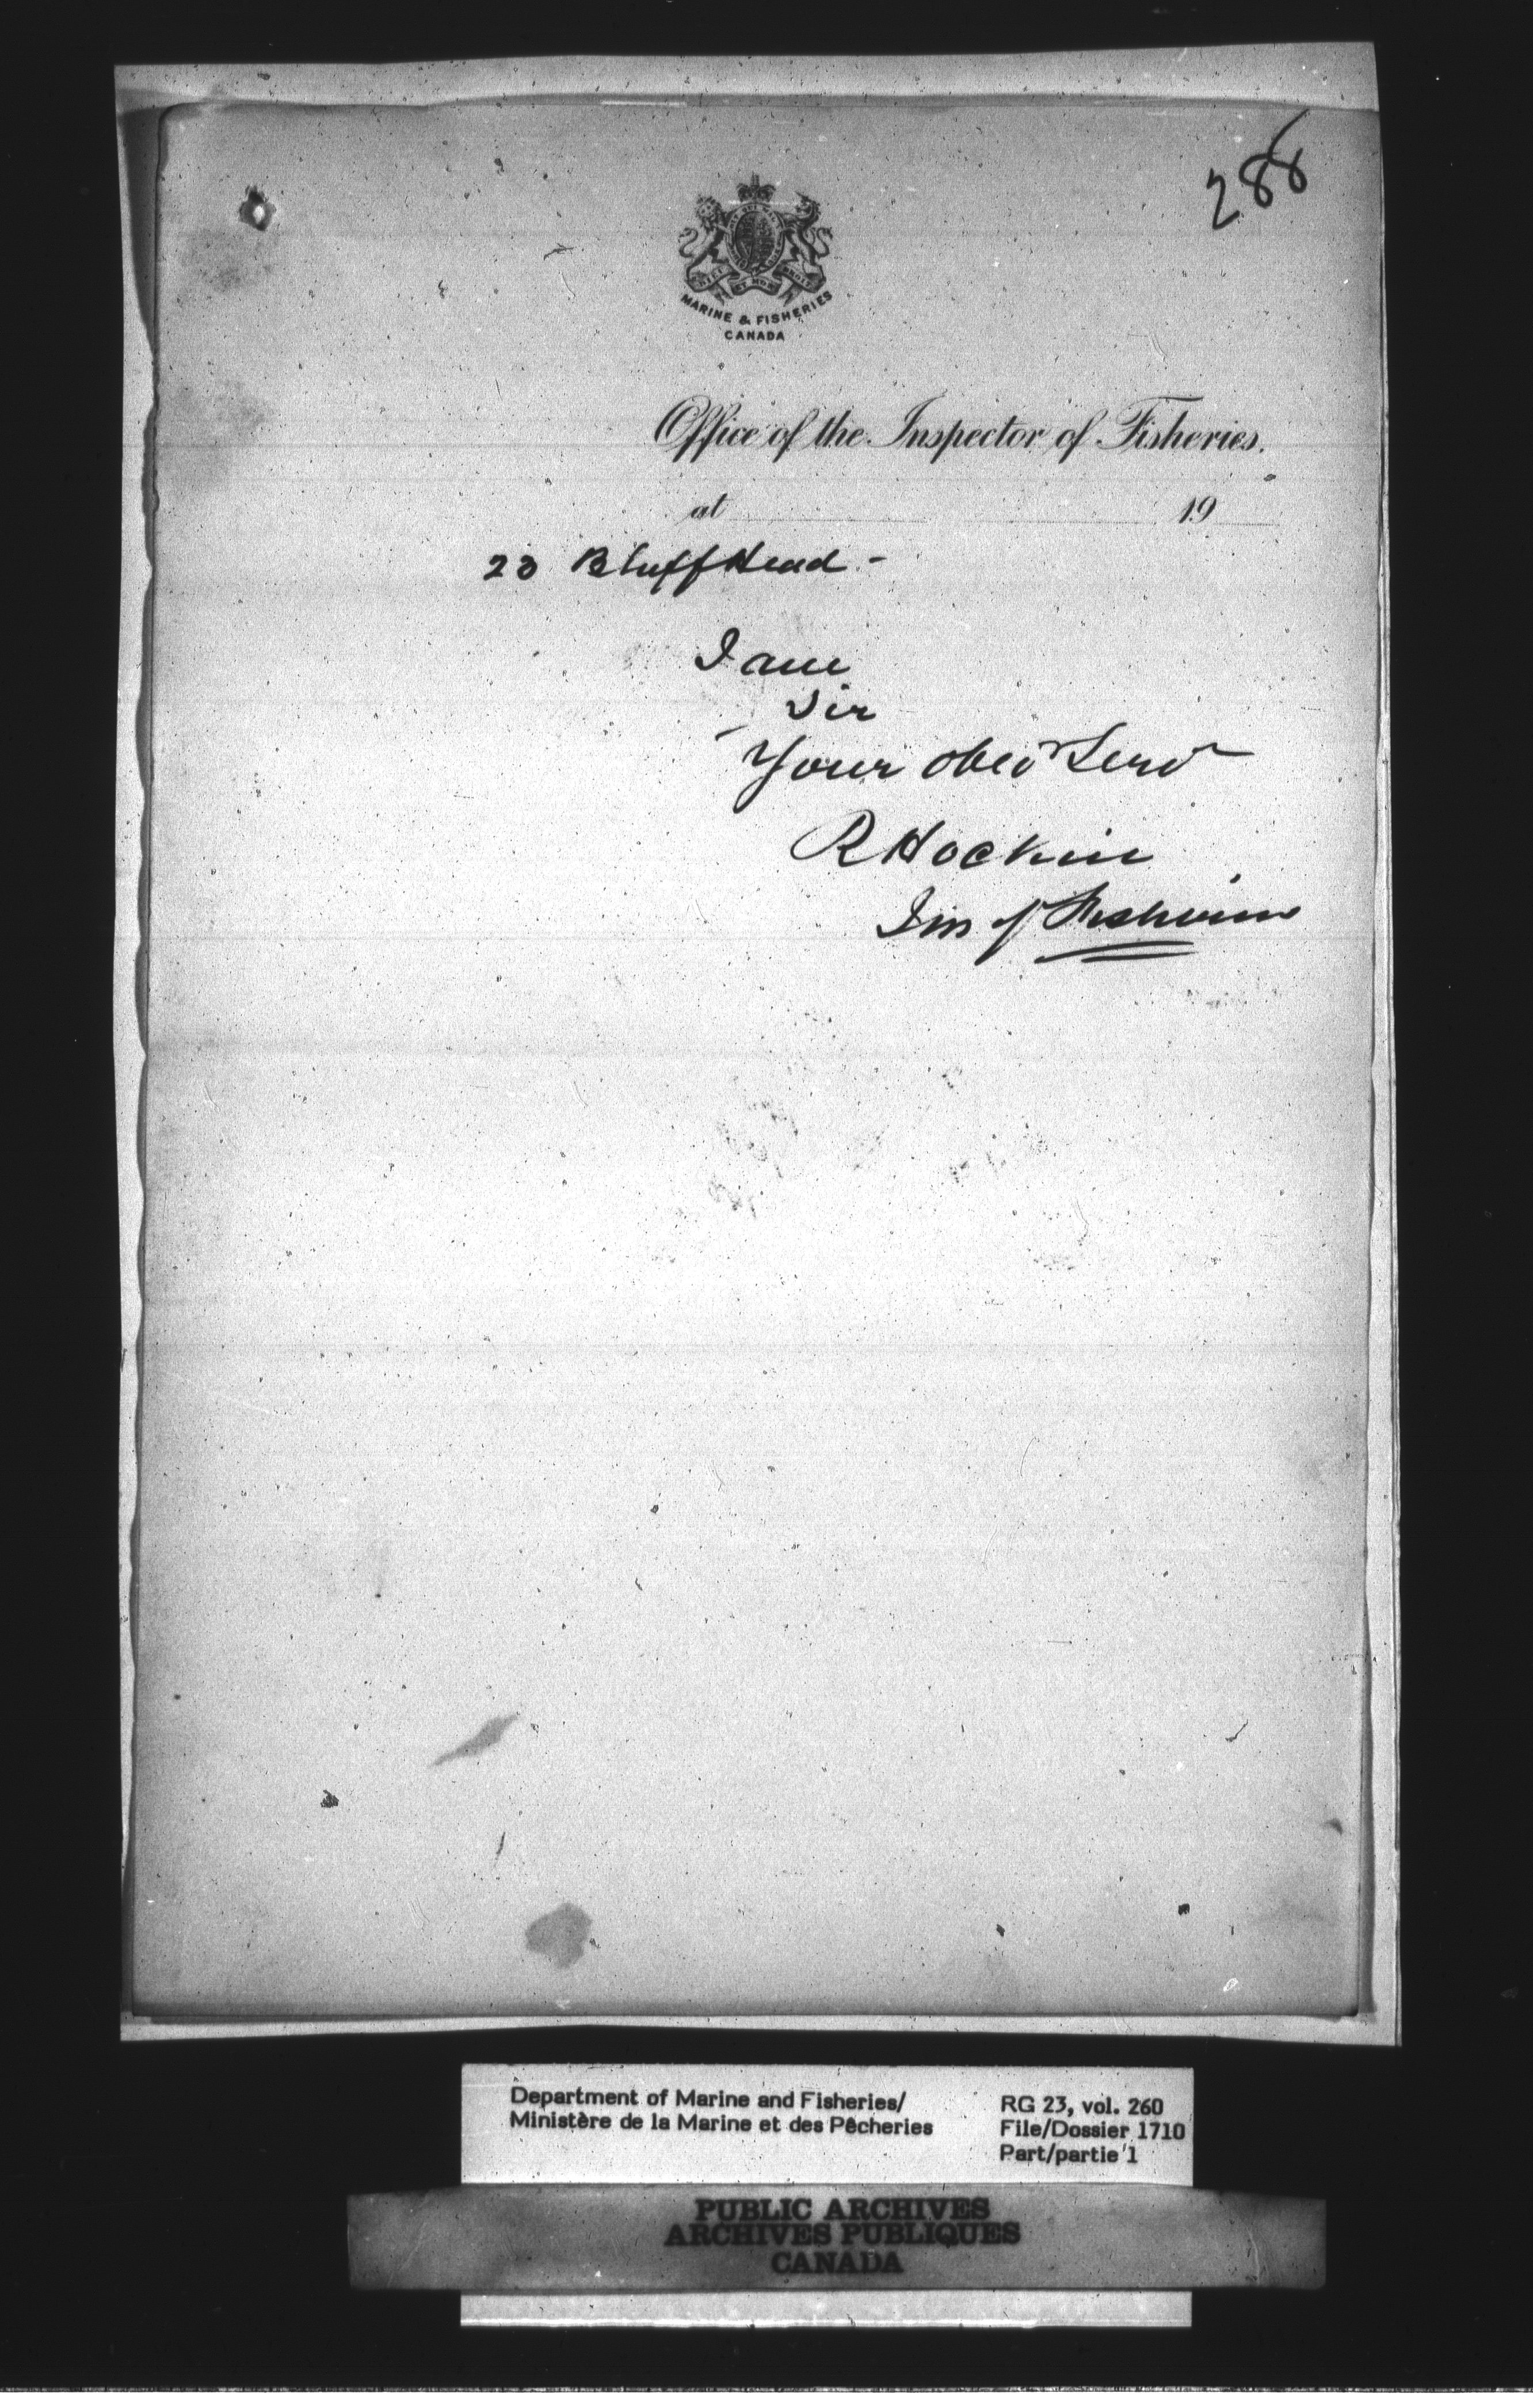 288
MARINE & FISHERIES
CANADA
Office of the Inspector of Fisheries.
at 19
23 Bluff Head -
I am
Sir
Your obed Servt
R Hockin
Ins of Fisheries
Department of Marine and Fisheries/
Ministère de la Marine et des Pêcheries
RG 23, vol. 260
File/Dossier 1710
Part/partie 1
PUBLIC ARCHIVES
ARCHIVES PUBLIQUES
CANADA